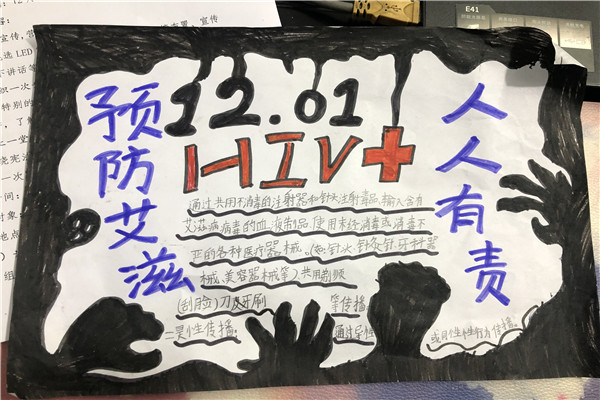 预防艾滋
12.01
HIV+
人人有责
通过共用不消毒的注射器和针头注射毒品,输入含有
艾滋病病毒的血液制品,使用未经消毒或消毒不
严的各种医疗器械。(如:针头、针灸针、牙科器
械、美容器械等)共用剃须
(刮脸)刀、牙刷 等传播
二是性传播。 通过异性 或同性性行为传播。
E41